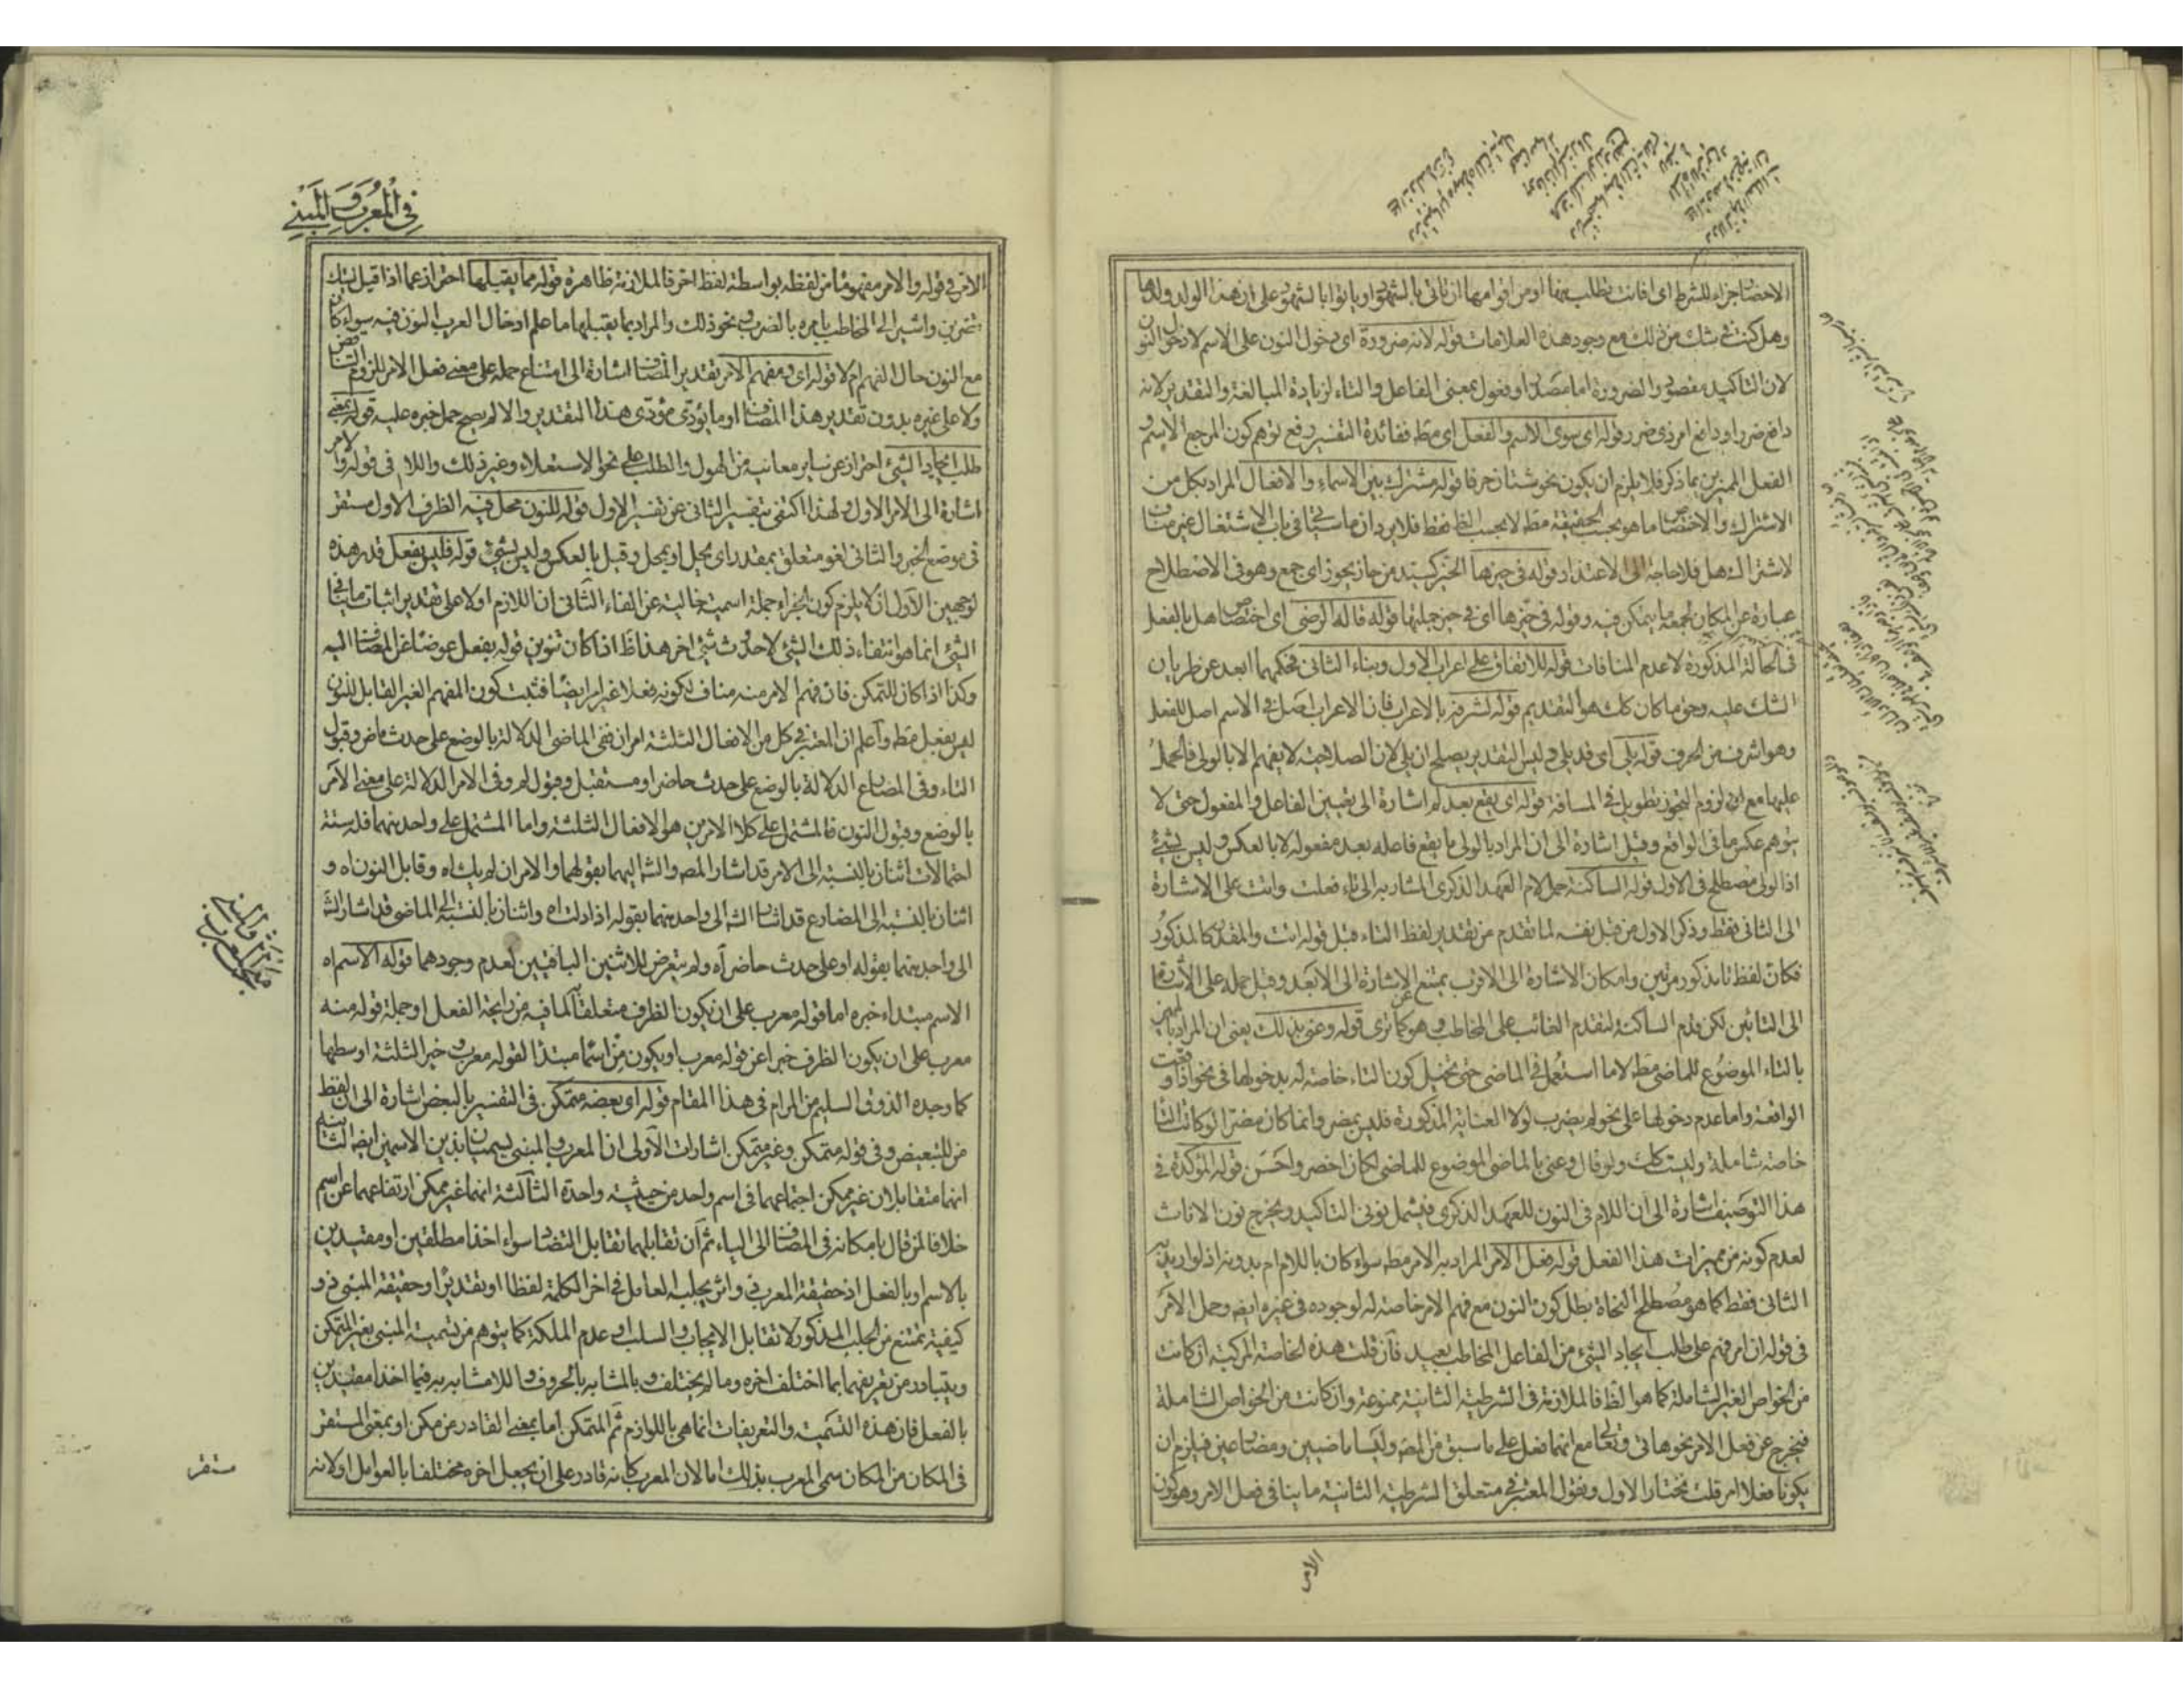 الاحضا جزاء للشرط اى فانت تطلب منها او من اقوامها ان تاتى بالشهود او ياتوا بالشهود على ان هذا الولد ولدها
وهل كنت فى شك من ذلك مع وجود هذه العلامات قوله لانه ضرورة اى دخول النون على الاسم لا دخول النون
لان التاكيد مقصود والضرورة اما مصدر او فعول بمعنى الفاعل والتاء لزيادة المبالغة والتقدير لانه
دافع ضرر او دافع امر ذى ضرر قوله اى سوى الاسم والفعل اى مط ففائدة التفسير رفع توهم كون المرجع الاسم و
الفعل المميزين بما ذكر فلا يلزم ان يكون نحو شتان حرفا قوله مشترك بين الاسماء والافعال المراد بكل من
الاشتراك والاختصاص ما هو بحسب الحقيقة مط لا بحسب الظ فقط فلا يرد ان ما سيجئ فى باب الاشتغال غير مناف
لاشتراك هل فلا حاجة الى الاعتذار قوله فى حيزها الحيز كسيد من حاز يحوز اى جمع وهو فى الاصطلاح
عبارة عن المكان لجمعه ما يتمكن فيه وقوله فى حيزها اى فى حيز جملتها قوله قاله الرضى اى اختصاص هل بالفعل
فى الحالة المذكورة لا عدم المنافات قوله للاتفاق على اعراب الاول وبناء الثانى فحكمهما ابعد عن طريان
الشك عليه وحق ما كان كك هو التقديم قوله لشرفه بالاعراب فان الاعراب اصل فى الاسم اصل للفعل
وهو اشرف من الحرف قوله يلى اى قد يلى وليس التقدير يصلح ان يلى لان الصلاحية لا يفهم الا بالولى فالحمل
عليها مع انه لزوم التجوز تطويل فى المسافة قوله اى يقع بعد لم اشارة الى تعيين الفاعل والمفعول حتى لا
يتوهم عكس ما فى الواقع وقيل اشارة الى ان المراد بالولى ما يقع فاصله بعد مفعوله لا بالعكس وليس بشئ
اذ الولى مصطلح فى الاول قوله الساكنة حمل لام العهد الذكرى المشار به الى تاء فعلت وانت على الاشارة
الى الثانى فقط وذكر الاول من قبل نفسه لما تقدم من تقدير لفظ التاء قبل قوله انت والمقدر كالمذكور
فكان لفظ تا مذكور مرتين وامكان الاشارة الى الاقرب يمتنع الاشارة الى الابعد وقيل حمله على الاشارة
الى التائين لكن قدم الساكنة لتقدم الغائب على المخاطب وهو كما ترى قوله وعنى بذلك يعنى ان المراد
بالتاء الموضوع للماضى مط لا ما استعمل فى الماضى حتى تخيل كون التاء خاصة له بدخولها فى نحو اذا وقعت
الواقعة واما عدم دخولها على نحو لم يضرب لولا العناية المذكورة فليس بمضر وانما كان مضرا لو كانت التا
خاصة شاملة وليست كك ولو قال وعنى بالماضى الموضوع للماضى لكان اخصر واحسن قوله المؤكدة فى
هذا التوصيف اشارة الى ان اللام فى النون للعهد الذكرى فيشمل نونى التاكيد ويخرج نون الاناث
لعدم كونه من مميزات هذا الفعل قوله فعل الامر المراد به الامر مط سواء كان باللام ام بدونه اذ لو اريد به
الثانى فقط كما هو مصطلح النحاة بطل كون النون مع فهم الامر خاصة له لوجوده فى غيره ايضه وحمل الامر
فى قوله ان امر فهم على طلب ايجاد الشئ من الفاعل المخاطب بعيد فان قلت هذه الخاصة المركبة ان كانت
من الخواص الغير الشاملة كما هو الظ فالملازمة فى الشرطية الثانية ممنوعة وان كانت من الخواص الشاملة
فيخرج عن فعل الامر نحو هاتى وتعالى مع انهما فعل على ما سبق من المصه وليسا ماضيين ومضارعين فيلزم ان
يكونا فعلا امر قلت نختار الاول ونقول المعتبر فى متعلق الشرطية الثانية ما ينافى فعل الامر وهو كون
الامر
فى المعرب والمبنى
الامر فى قوله والامر مفهوما من لفظه بواسطة لفظ اخر فالملازمة ظاهرة قوله مما يقبلها احتراز عما اذا قيل ليتك
تضربن واشير الى المخاطب بامره بالضرب ونحو ذلك والمراد بما يقبلها ما علم ادخال العرب النون فيه سواء كان
مع النون حال الفهم ام لا قوله اى ومفهم الامر تقدير المضاف اشارة الى امتناع حمله على معنى فعل الامر للزوم التناقض
ولا على غيره بدون تقدير هذا المضاف او ما يؤدى مؤدى هذا التقدير والا لم يصح حمل خبره عليه قوله بمعنى
طلب ايجاد الشئ احتراز عن ساير معانيه من الهول والطلب على نحو الاستعلاء وغير ذلك واللام فى قوله والامر
اشارة الى الامر الاول ولهذا اكتفى بتفسير الثانى عن تفسير الاول قوله للنون محل فيه الظرف الاول مستقر
فى موضع الخبر والثانى لغو متعلق بمقدر اى يحل او بمحل وقيل بالعكس وليس بشئ قوله فليس بفعل قدر هذه
لوجهين الاول ان لا يلزم كون الجزاء جملة اسمية خالية عن الفاء الثانى ان اللازم اولا على تقدير اثبات ما ينافى
الشئ انما هو انتفاء ذلك الشئ لا حدوث شئ اخر هذا ظ اذا كان تنوين قوله بفعل عوضا عن المضاف اليه
وكذا اذا كان للتمكن فان فهم الامر منه مناف لكونه فعلا غير امر ايضا فثبت كون المفهم الغير القابل للنون
ليس بفعل مط واعلم ان المعتبر فى كل من الافعال الثلثة امران ففى الماضى الدلالة بالوضع على حدث ماض وقبول
التاء وفى المضارع الدلالة بالوضع على حدث حاضر او مستقبل وقبول لم وفى الامر الدلالة على معنى الامر
بالوضع وقبول النون فالمشتمل على كلا الامرين هو الافعال الثلثة واما المشتمل على واحد منهما فله ستة
احتمالات اثنان بالنسبة الى الامر قد اشار المصه والشه اليهما بقولهما والامر ان لم يك اه وقابل النون اه و
اثنان بالنسبة الى المضارع قد اشار الشه الى واحد منهما بقوله اذا دلت اه واثنان بالنسبة الى الماضى قد اشار الشه
الى واحد منهما بقوله او على حدث حاضر اه ولم يتعرض للاثنين الباقيين لعدم وجودهما قوله الاسم اه
الاسم مبتداء خبره اما قوله معرب على ان يكون الظرف متعلقا لما فيه من رايحة الفعل او جملة قوله منه
معرب على ان يكون الظرف خبرا عن قوله معرب او يكون من اسما مبتدا لقوله معرب وخير الثلثة اوسطها
كما وجده الذوق السليم من المرام فى هذا المقام قوله اى بعضه متمكن فى التفسير بالبعض اشارة الى ان لفظ
من للتبعيض وفى قوله متمكن وغير متمكن اشارات الاولى ان المعرب والمبنى يسميان بذين الاسمين ايضه الثانية
انهما متقابلان غير ممكن اجتماعهما فى اسم واحد من حيثية واحدة الثالثة انهما غير ممكن ارتفاعهما عن اسم
خلافا لمن قال بامكانه فى المضاف الى الياء ثم ان تقابلهما تقابل التضاد سواء اخذا مطلقين او مقيدين
بالاسم او بالفعل اذ حقيقة المعرب ذو اثر يجلبه العامل فى اخر الكلمة لفظا او تقديرا وحقيقة المبنى ذو
كيفية تمتنع من الجلب المذكور لا تقابل الايجاب والسلب او عدم الملكة كما يتوهم من تسمية المبنى بغير المتمكن
ويتبادر من تعريفهما بما اختلف اخره وما لم يختلف وبالمشابه بالحروف واللامشابه به فيما اخذا مقيدين
بالفعل فان هذه التسمية والتعريفات انما هى باللوازم ثم المتمكن اما بمعنى القادر من مكن او بمعنى المستقر
فى المكان من المكان سمى المعرب بذلك اما لان المعرب كانه قادر على ان يجعل اخره مختلفا بالعوامل او لانه
مستقر